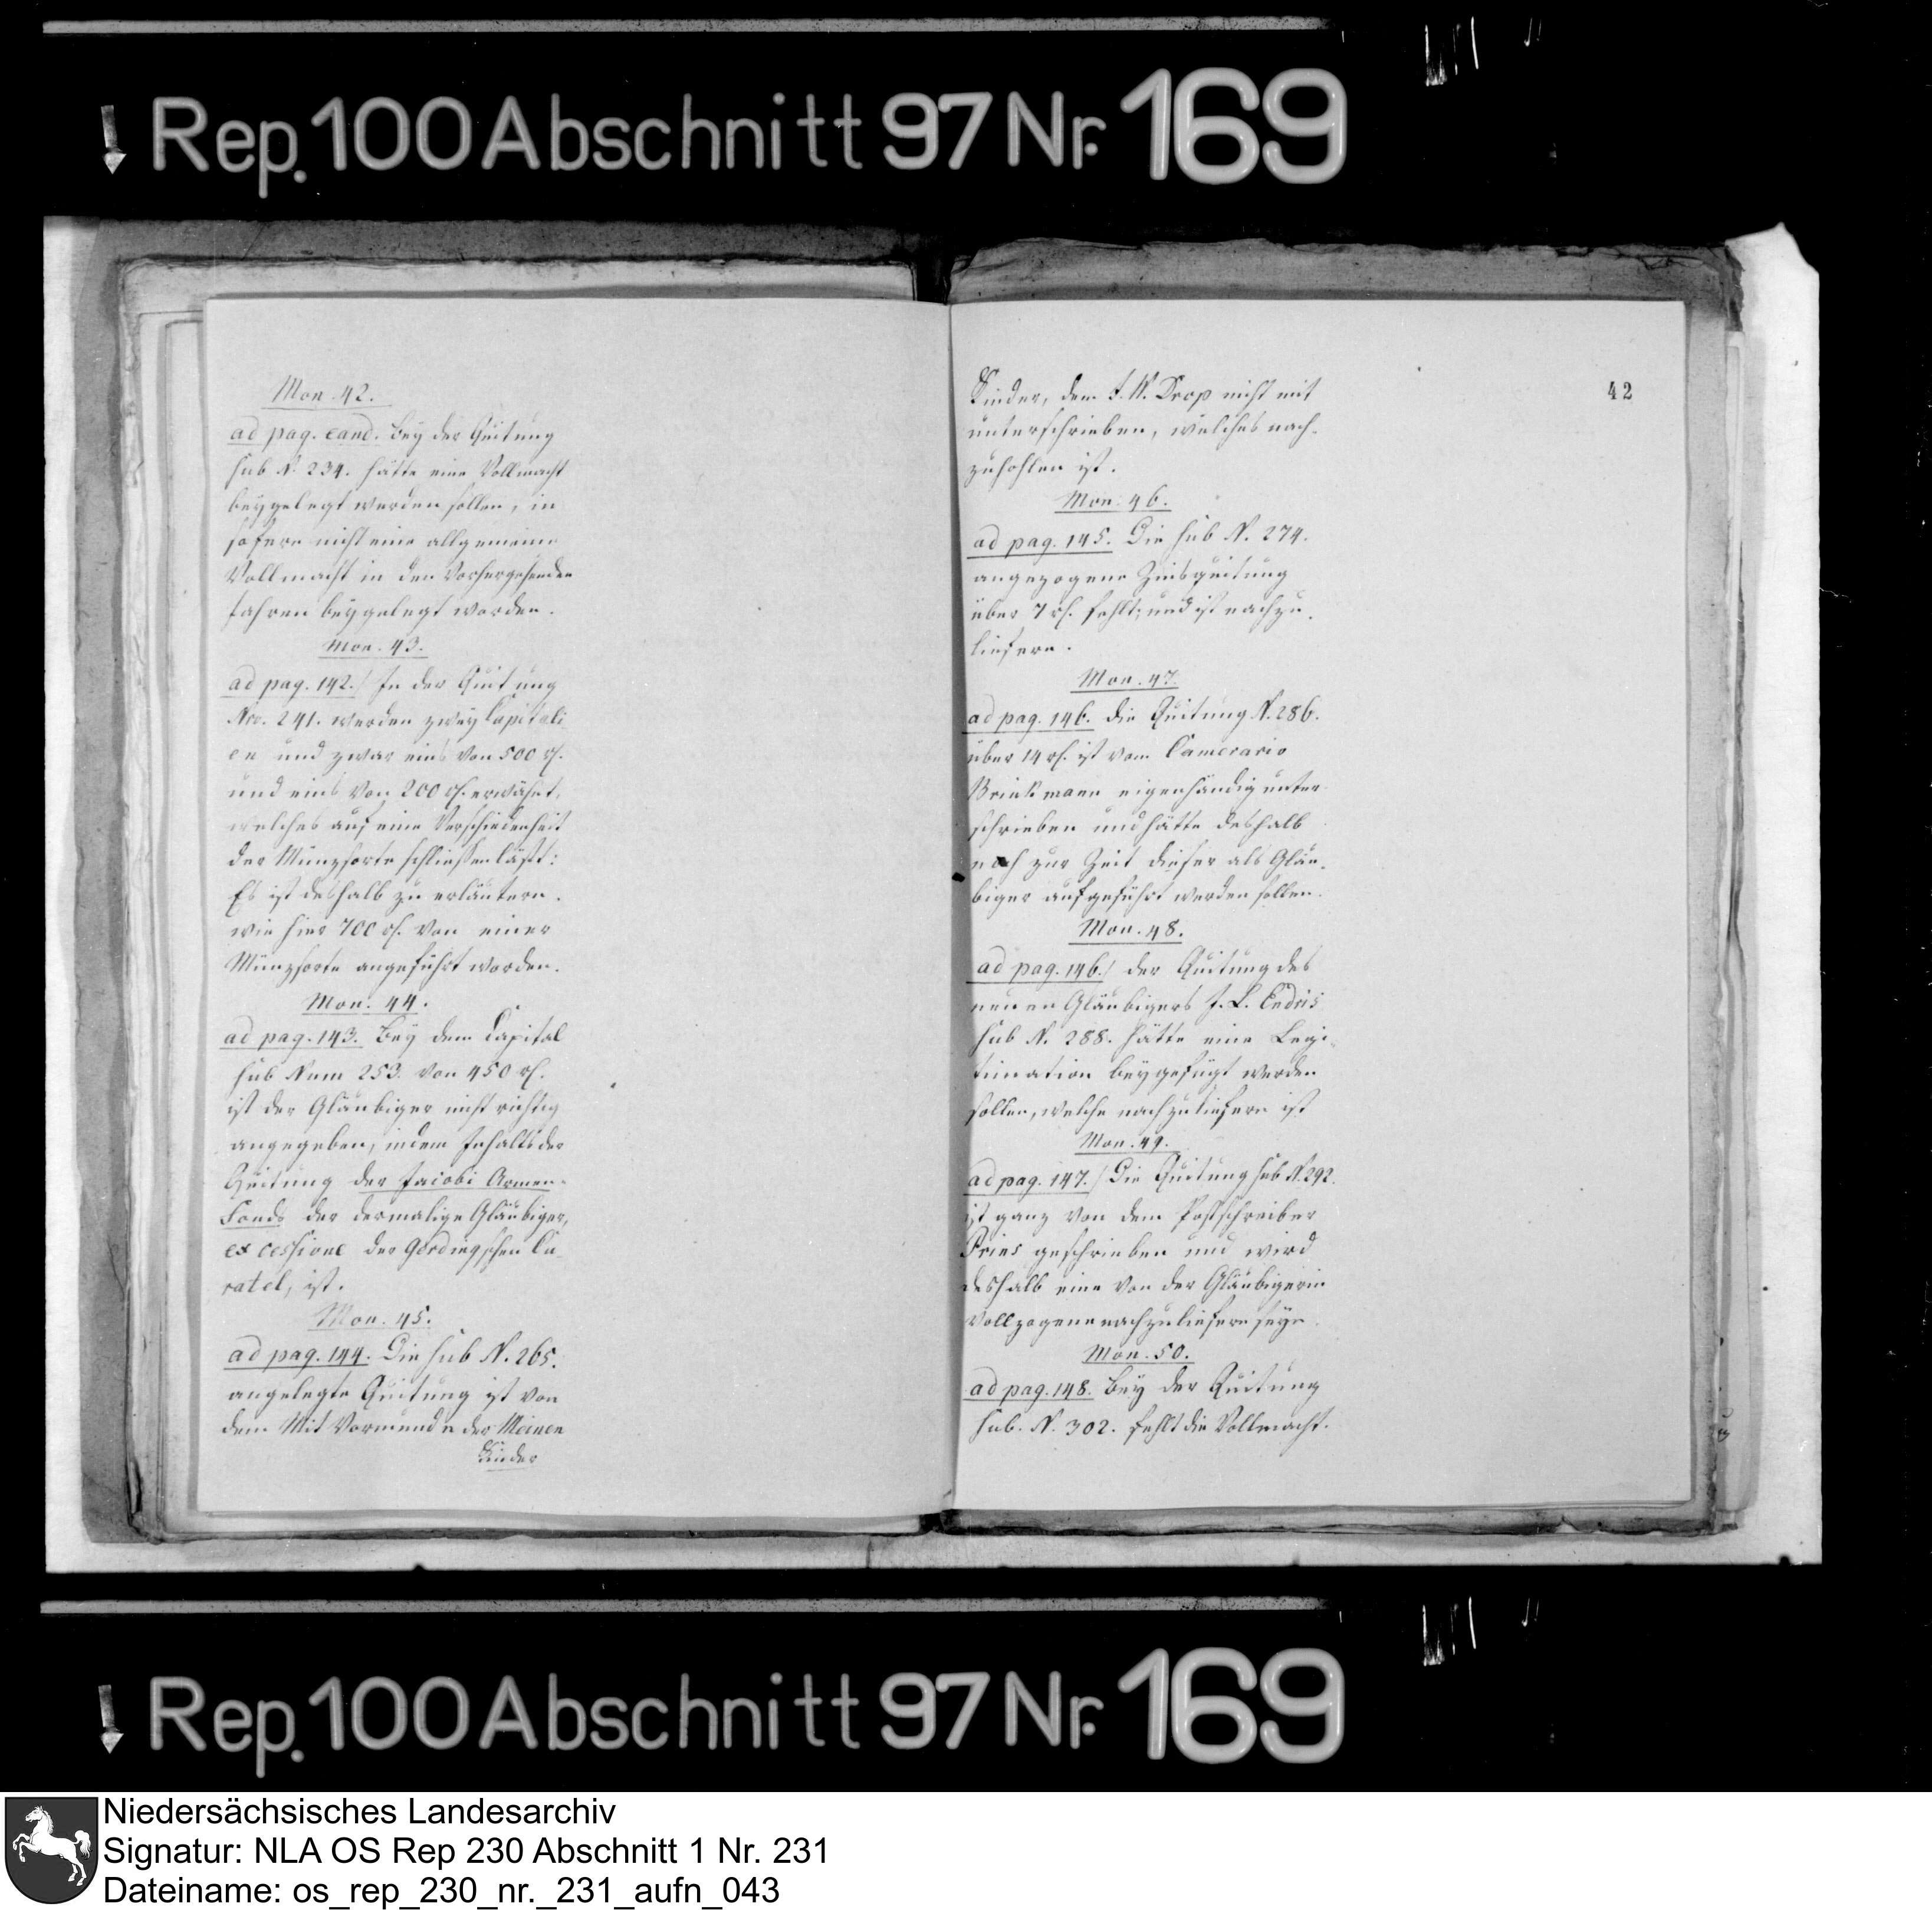 Rep. 100 Abschnitt 97 Nr. 169
Mon. 42.
ad pag. eand. bey der Quitung
sub N. 234. hätte eine Vollmacht
beygelegt werden sollen, in
sofern nicht eine allgemeine
Vollmacht in den vorhergehenden
Jahren beygelegt worden.
Mon. 43.
ad pag. 142./ In der Quitung
Nro. 241. werden zwey Capitali
en und zwar eins von 500 rh.
und eins von 200 rh. erwähnt,
welches auf eine Verschiedenheit
der Münzsorte schließen läßt:
Es ist deshalb zu erläutern.
wie hier 700 rh. von einer
Münzsorte angeführt worden.
Mon. 44.
ad pag. 143. bey dem Capital
sub Num 253. von 450 rh.
ist der Gläubiger nicht richtig
angegeben, indem Inhalts der
Quitung der Jacobi Armen-
Fonds der dermalige Gläubiger,
ex cessione der Gördingschen Cu-
ratel, ist.
Mon. 45.
ad pag. 144. Die sub N. 265.
angelegte Quitung ist von
dem Mit Vormunde der Meinen
Kinder
42
Kinder, dem J. W. Drop nicht mit
unterschrieben, welches nach-
zuhohlen ist.
Mon. 46.
ad pag. 145. Die sub N. 274.
angezogene Zinsquitung
über 7 rh. fehlt, und ist nachzu-
liefern.
Mon. 47.
ad pag. 146. die Quitung N. 286.
über 14 rh. ist vom Camerario
Brinkmann eigenhändig unter
schrieben und hätte deshalb
noch zur Zeit dieser als Gläu-
biger aufgeführt werden sollen.
Mon. 48.
ad pag. 146./ der Quitung des
neuen Gläubigers J. L. Endris
sub N. 288. hätte eine Legi-
timation beygefügt werden
sollen, welche nachzuliefern ist
Mon. 49.
ad pag. 147./ Die Quitung sub N. 292.
ist ganz von dem Postschreiber
Fries geschrieben und wird
deshalb eine von der Gläubigerin
vollzogene nachzuliefern seyn.
Mon. 50.
ad pag. 148. bey der Quitung
sub. N. 302. fehlt die Vollmacht.
Rep. 100 Abschnitt 97 Nr. 169
Niedersächsisches Landesarchiv
Signatur: NLA OS Rep 230 Abschnitt 1 Nr. 231
Dateiname: os_rep_230_nr._231_aufn_043